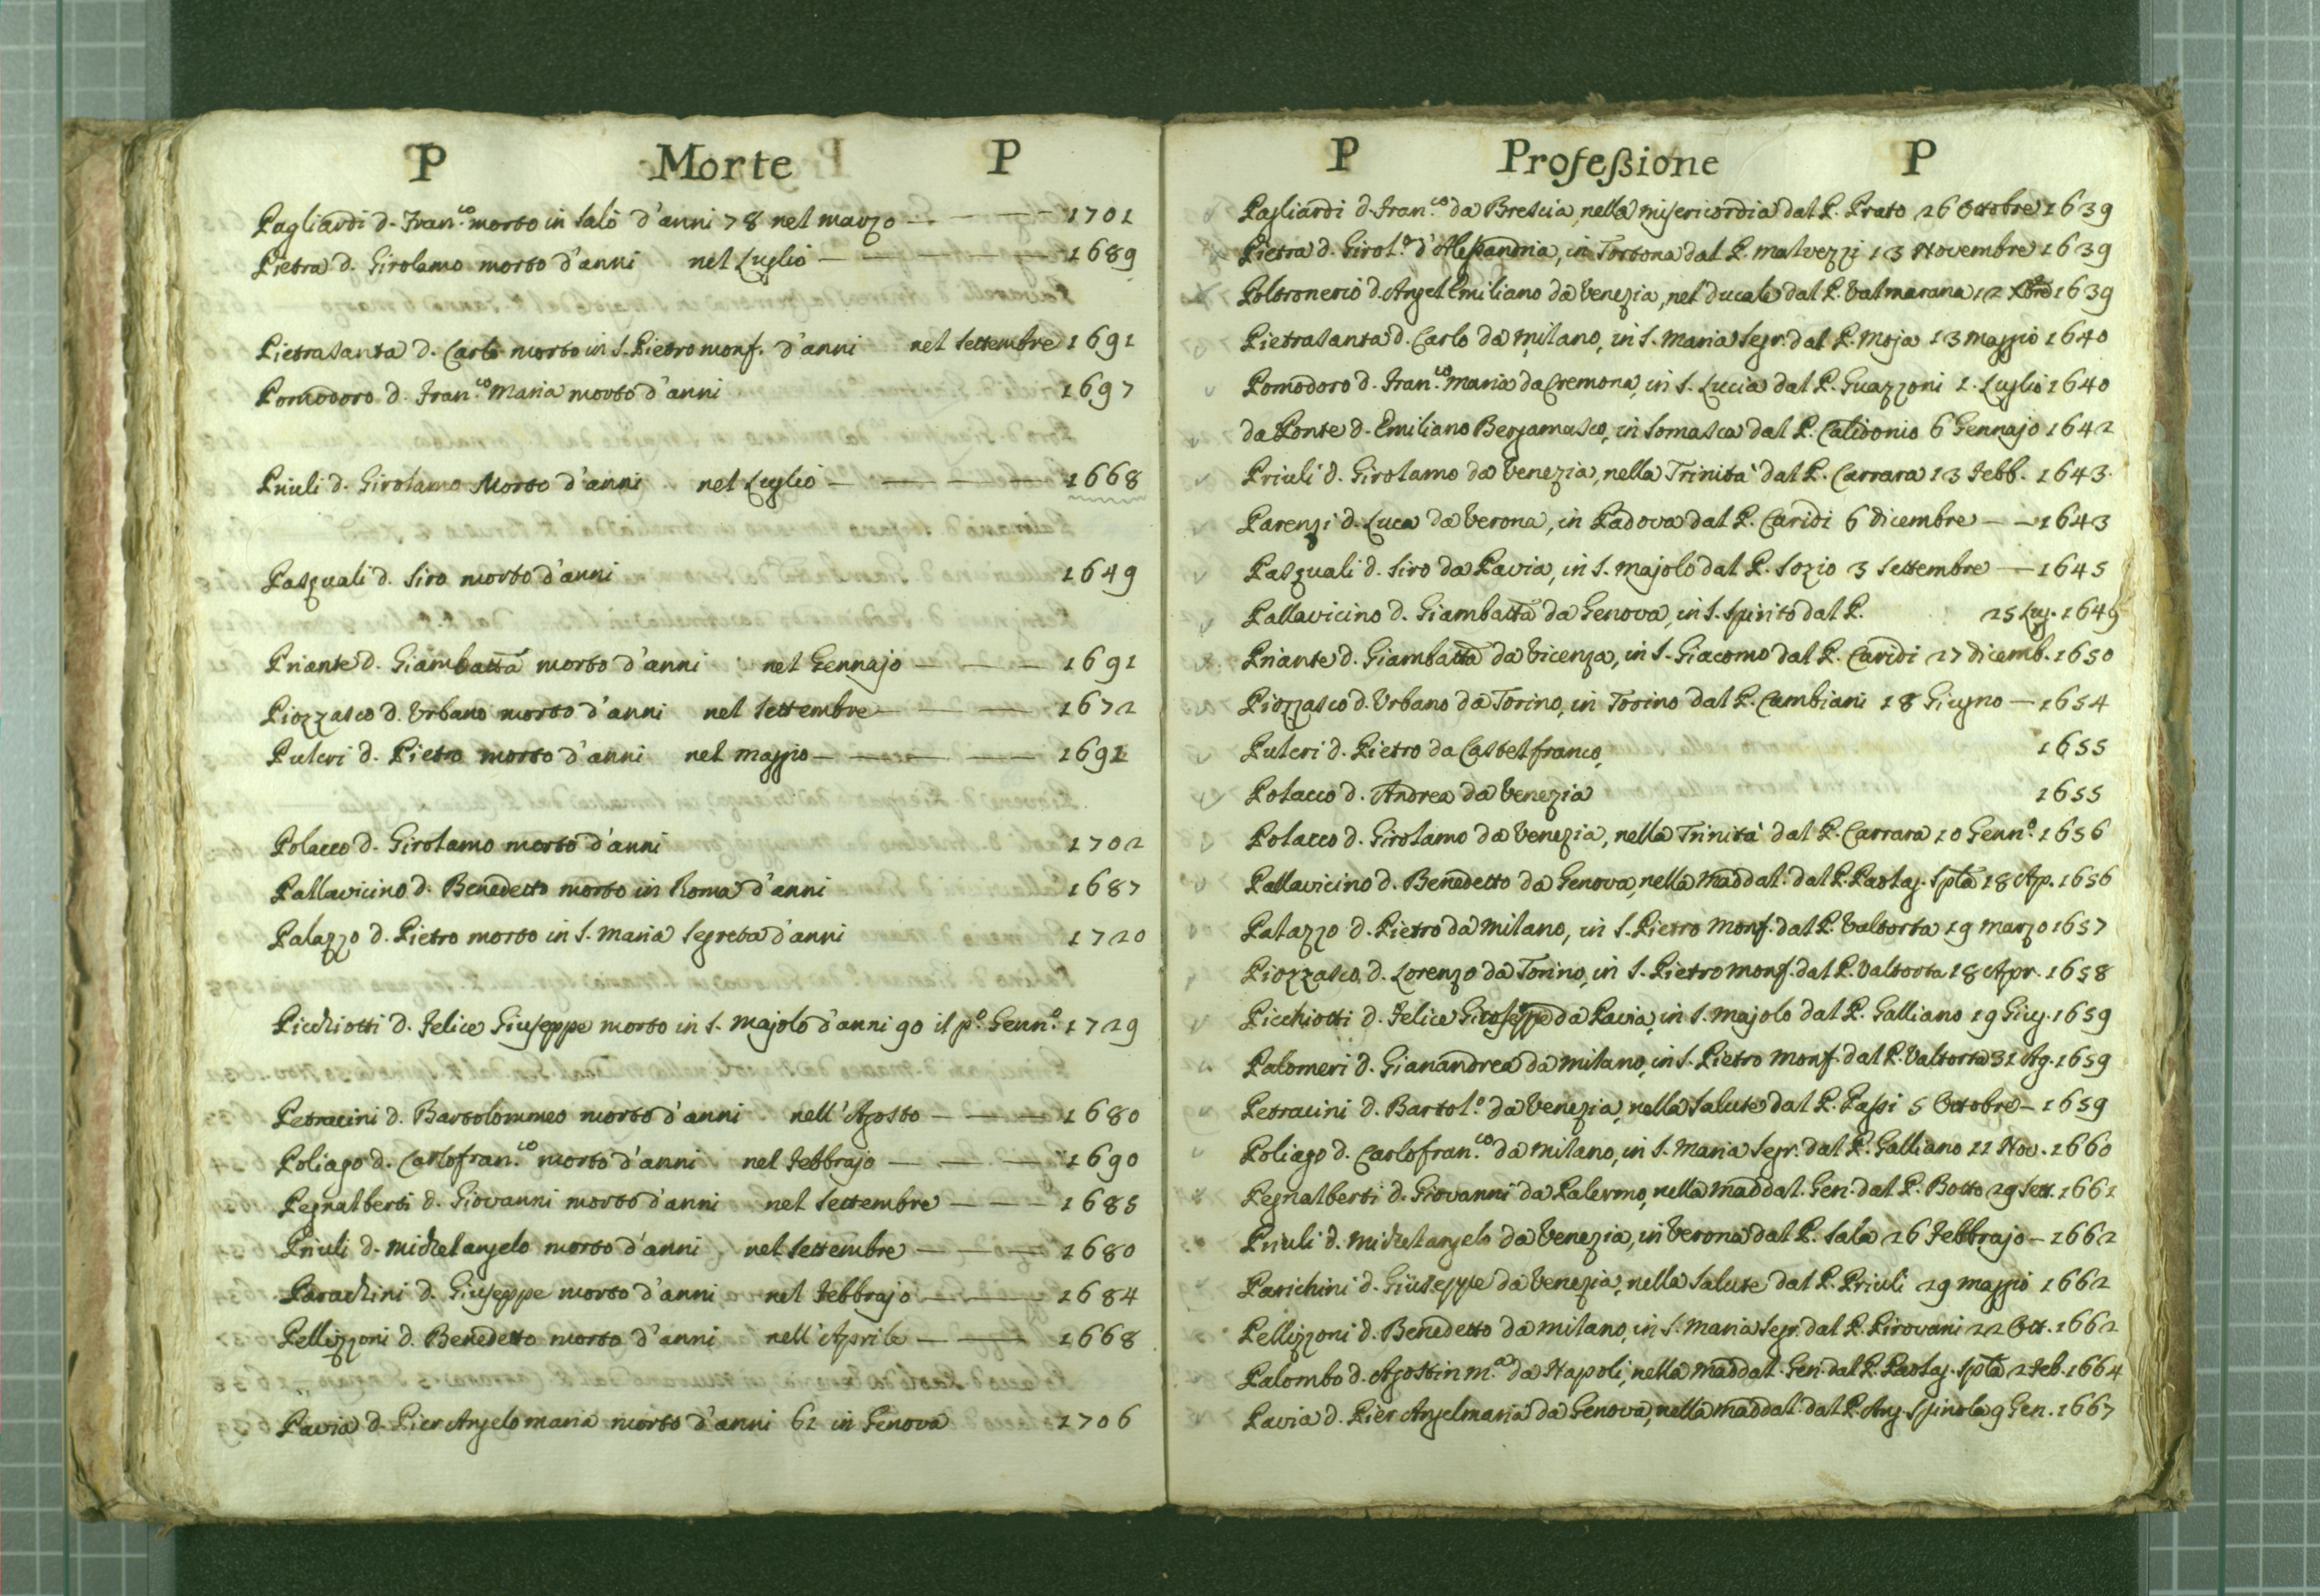 P Morte P
Pagliardi d. Fran.co morto in Salò d'anni 78 nel marzo — — — 1701
Pietra d. Girolamo morto d'anni nel Luglio — — — — — 1689
Pietrasanta d. Carlo morto in S. Pietro monf. d'anni nel Settembre 1691
Pomodoro d. Fran.co Maria morto d'anni 1697
Priuli d. Girolamo Morto d'anni nel Luglio — — — — 1668
Pasquali d. Siro morto d'anni 1649
Priante d. Giambatta morto d'anni nel Gennajo — — — 1691
Piozzasco d. Urbano morto d'anni nel Settembre — — — 1672
Pulcri d. Pietro morto d'anni nel maggio — — — — 1691
Polacco d. Girolamo morto d'anni 1702
Pallavicino d. Benedetto morto in Roma d'anni 1687
Palazzo d. Pietro morto in S. Maria Segreta d'anni 1720
Picchiotti d. Felice Giuseppe morto in S. Majolo d'anni 90 il p.o Genn.o 1729
Petracini d. Bartolommeo morto d'anni nell'Agosto — — — 1680
Poliago d. Carlofran.co morto d'anni nel Febbrajo — — — 1690
Pegnalberti d. Giovanni morto d'anni nel Settembre — — — 1685
Priuli d. Michelangelo morto d'anni nel Settembre — — — 1680
Parachini d. Giuseppe morto d'anni nel Febbrajo — — — 1684
Pellizzoni d. Benedetto morto d'anni nell'Aprile — — 1668
Pavia d. Pier Angelo maria morto d'anni 61 in Genova 1706
P Profeßione P
Pagliardi d. Fran.co da Brescia, nella misericordia dal P. Prato 26 Ottobre 1639
Pietra d. Girol.o d'Aleßandria, in Tortona dal P. Malvezzi 13 Novembre 1639
Poltronerio d. Angel Emiliano da Venezia, nel ducale dal P. Valmarana 12 Xbre 1639
Pietrasanta d. Carlo da Milano, in S. Maria Segr. dal P. Moja 13 Maggio 1640
Pomodoro d. Fran.co Maria da Cremona, in S. Lucia dal P. Guazzoni 1. Luglio 1640
da Ponte d. Emiliano Bergamasco, in Somasca dal P. Calidonio 6 Gennajo 1642
Priuli d. Girolamo da Venezia, nella Trinità dal P. Carrara 13 Febb. 1643.
Parenzi d. Luca da Verona, in Padova dal P. Caridi 6 dicembre — — 1643
Pasquali d. Siro da Pavia, in S. Majolo dal P. Sozio 3 Settembre — 1645
Pallavicino d. Giambatta da Genova, in S. Spirito dal P. 25 Lug. 1649
Priante d. Giambatta da Vicenza, in S. Giacomo dal P. Caridi 27 dicemb. 1650
Piozzasco d. Urbano da Torino, in Torino dal P. Cambiani 18 Giugno — 1654
Pulcri d. Pietro da Castelfranco, 1655
Polacco d. Andrea da Venezia 1655
Polacco d. Girolamo da Venezia, nella Trinità dal P. Carrara 10 Genn.o 1656
Pallavicino d. Benedetto da Genova, nella Maddal. dal P. Paolag. Spla 18 Ap. 1656
Palazzo d. Pietro da Milano, in S. Pietro Monf. dal P. Valtorta 19 Marzo 1657
Piozzasco d. Lorenzo da Torino, in S. Pietro Monf. dal P. Valtorta 18 Apr. 1658
Picchiotti d. Felice Giuseppe da Pavia, in S. Majolo dal P. Galliano 19 Giug. 1659
Palomeri d. Gianandrea da Milano, in S. Pietro Monf. dal P. Valtorta 31 Ag. 1659
Petracini d. Bartol.o da Venezia, nella Salute dal P. Paßi 5 Ottobre — 1659
Poliago d. Carlofran.co da Milano, in S. Maria Segr. dal P. Galliano 11 Nov. 1660
Pegnalberti d. Giovanni da Palermo, nella Maddal. Gen. dal P. Botto 29 Sett. 1661
Priuli d. Michelangelo da Venezia, in Verona dal P. Sala 26 Febbrajo — 1662
Parichini d. Giuseppe da Venezia, nella Salute dal P. Priuli 29 maggio 1662
Pellizzoni d. Benedetto da Milano, in S. Maria Segr. dal P. Pirovani 22 Ott. 1662
Palombo d. Agostin m.a da Napoli, nella Maddal. Gen. dal P. Paolag. Spla 2 Feb. 1664
Pavia d. Pier Angelmaria da Genova, nella Maddal. dal P. Ang. Spinola 9 Gen. 1667